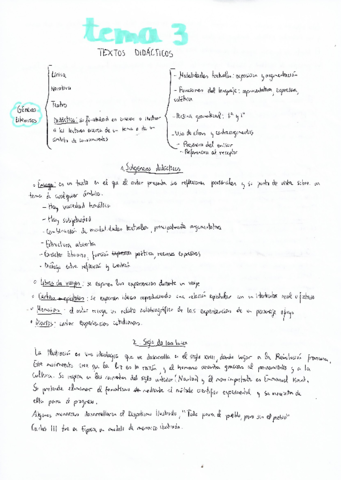 tema 3
TEXTOS DIDÁCTICOS
Géneros
literarios
Lírica
Narrativa
Teatro
Didáctica: su finalidad es enseñar o instruir
a los lectores acerca de un tema o de un
ámbito de conocimientos
- Modalidades textuales: exposición y argumentación
- Funciones del lenguaje: representativa, expresiva,
estética
- Persona gramatical: 3ª y 1ª
- Uso de y contraargumentos
- Presencia del emisor
- Referencias al receptor
1. Subgéneros didácticos
Ensayo: es un texto en el que el autor presenta sus reflexiones personales y su punto de vista sobre un
tema de cualquier ámbito.
- Hay variedad temática
- Hay subjetividad
- Combinación de modalidades textuales, principalmente argumentativa
- Estructura abierta
- Carácter literario, función poética, recursos expresivos
- entre reflexión y
Libros de viajes: se exponen las experiencias durante un viaje
Cartas: se exponen ideas reproduciendo una relación epistolar con un destinatario real o ficticio
Memorias: el autor un relato autobiográfico de las experiencias de un personaje
Diarios: exponer experiencias cotidianas.
2. Siglo de las luces
La Ilustración es una ideología que se desarrolla en el siglo XVIII, dando lugar a la Revolución francesa.
Este movimiento cree que la luz es la razón, y el humano avanza gracias al pensamiento y a la
cultura. Se en las corrientes del siglo anterior: Newton y el más importante es Immanuel Kant.
Se pretende eliminar el fanatismo mediante el método científico experimental y se necesita de
ello para el progreso.
Algunos monarcas desarrollaron el Despotismo Ilustrado, "Todo para el pueblo, pero sin el pueblo"
Carlos III fue en España un modelo de monarca ilustrado.